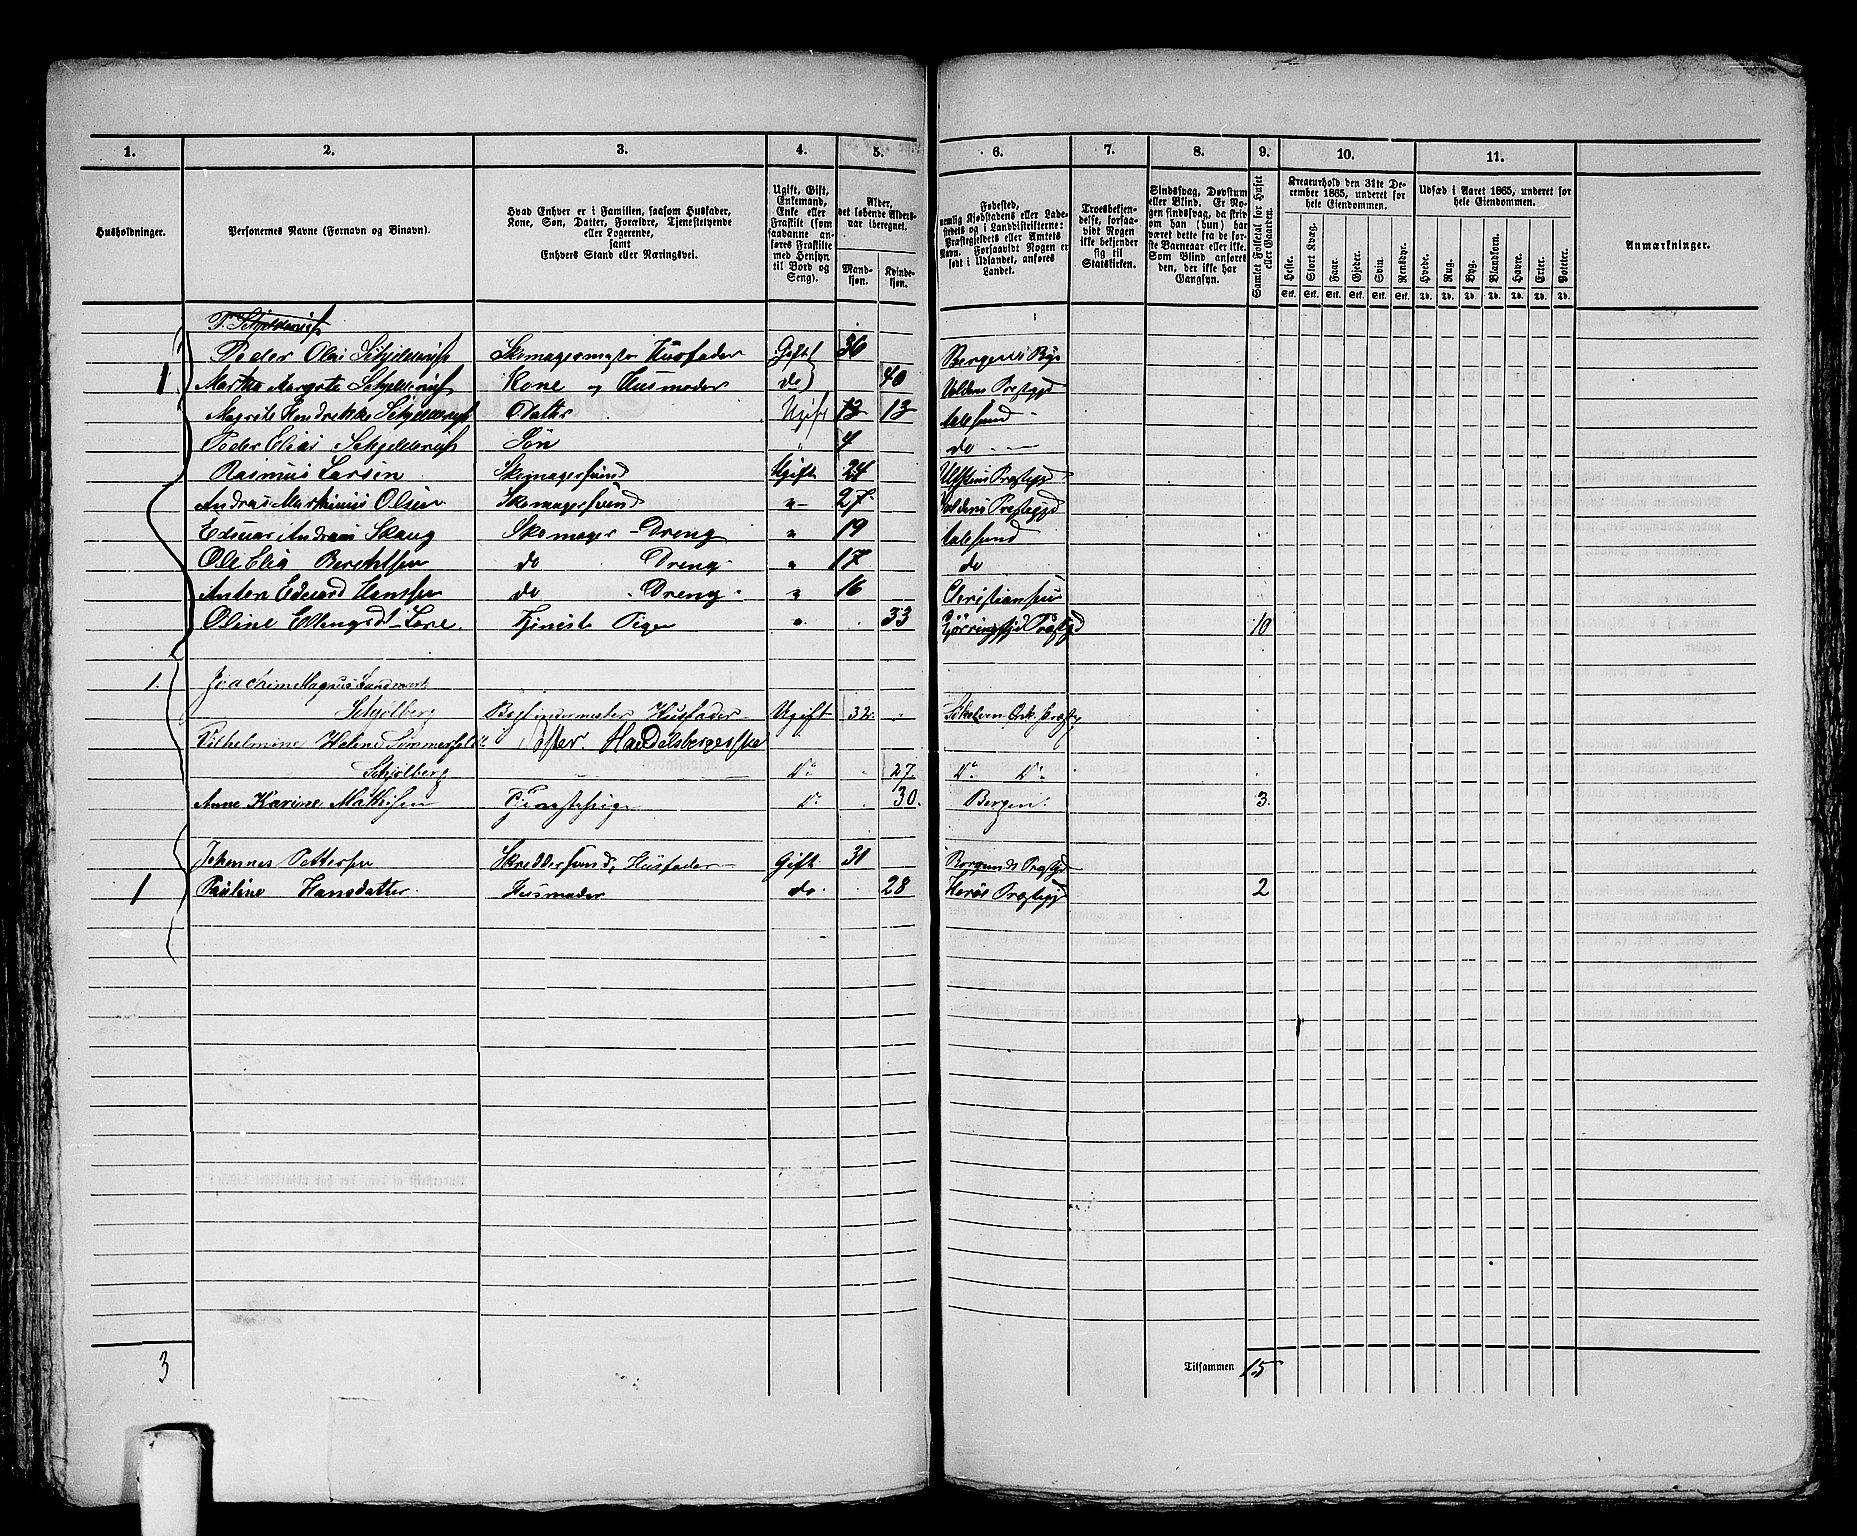 1. 2. 3. 4. 5. 6. 7. 8. 9. 10. 11.
Husholdninger.
Personernes Navne (Fornavn og Binavn).
Hvad Enhver er i Familien, saasom Husfader,
Kone, Søn, Datter, Forældre, Tjenestetyende
eller Logerende,
samt
Enhvers Stand eller Næringsvei.
Ugift, Gift,
Enkemand,
Enke eller
Fraskilt (som
saadanne an-
føres Fraskilte
med Hensyn
til Bord og
Seng).
Alder,
det løbende Alders-
aar iberegnet.
Mand-
kjøn.
Kvinde-
kjøn.
Fødested,
nemlig Kjøbstadens eller Lade-
stedets og i Landdistrikterne:
Præstegjeldets eller Amtets
Navn. Forsaavidt Nogen er
født i Udlandet, anføres
Landet.
Troesbekjen-
delse, forsaa-
vidt Nogen
ikke bekjender
sig til
Statskirken.
Sindssvag, Døvstum
eller Blind. Er No-
gen sindssvag, da skriv
om han (hun) har
været dette fra de før-
ste Barneaar eller ikke.
Som Blind anføres
den, der ikke har
Gangsyn.
Samlet Folketal for Huset
eller Gaarden.
Kreaturhold den 31te De-
cember 1865, underet for
hele Eiendommen.
Heste. Stort Kvæg. Faar. Gjeder. Svin. Rensdyr.
Stk. Stk. Stk. Stk. Stk. Stk.
Udsæd i Aaret 1865, underet for
hele Eiendommen.
Hvede. Rug. Byg. Blandkorn. Havre. Erter. Poteter.
Td. Td. Td. Td. Td. Td. Td.
Anmærkninger.
P. Schjelderup
Peder Olai Schjelderup Skomagermester Husfader Gift 36 Bergens By
1 Martha Margrete Schjelderup Kone og Husmoder do 40 Voldens Præstegjd
Magrete Hendrekke Schjelderup Datter Ugift 13 13 Aalesund
Peder Elias Schjelderup Søn " 4 do
Rasmus Larsen Skomagersvend Ugift 24 Ulfstens Præstegjd
Andreas Markinius Olsen Skomagersvend " 27 Voldens Præstegjd
Edvart Andreas Skaug Skomager-Dreng " 19 Aalesund
Ole Elia Berentsen do Dreng " 17 do
Anton Edvard Hanssen do Dreng " 16 Christiansund
Oline Ellingsdt Tjeneste Pige " 33 Præstgd 10
1. Joachim Magnus Landmark
Schjølberg Bogbindermester Husfader Ugift 32 Præstg
Vilhelmine Helene Sommerfeldt Søster. Handelsbergerske
Schjølberg Do 27. Do Do
Anne Karine Mathisen Tjenestepige Do 30. Bergen. 3.
Johannes Pettersen Skreddersvend, Husfader Gift 31 Borgunds Præstgd
1 Pauline Hansdatter Husmoder do 28 Herøe Præstegjd 2
3
Tilsammen 15